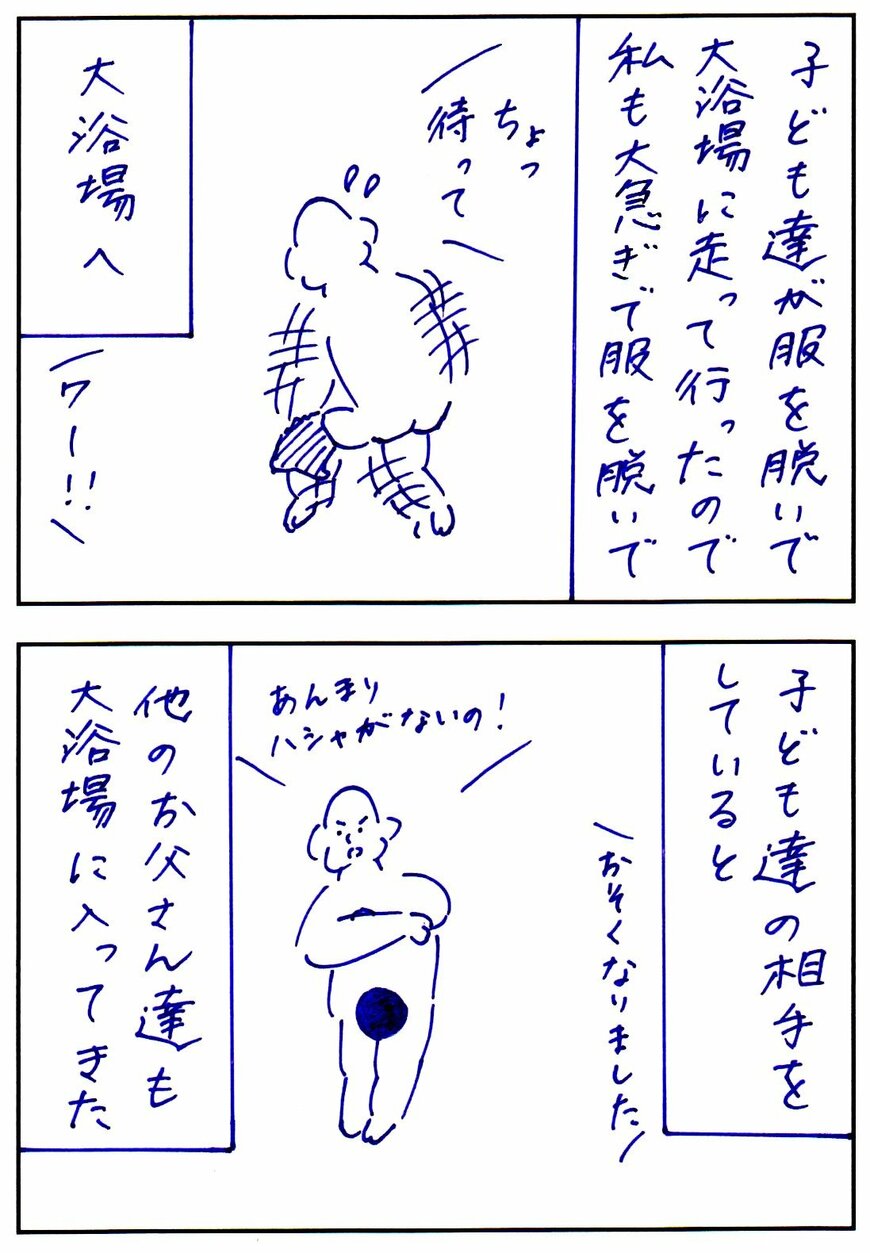 子ども達が服を脱いで
大浴場に走って行ったので
私も大急ぎで服を脱いで
ちょっ
待って
大浴場へ
ワー!!
子ども達の相手を
していると
おそくなりました
あんまり
ハシャがないの!
他のお父さん達も
大浴場に入ってきた